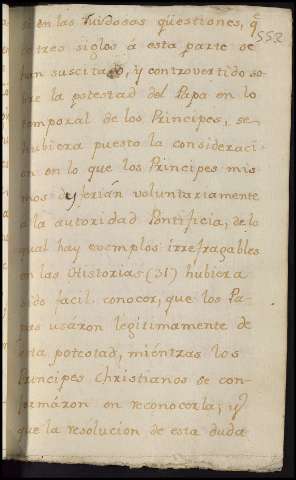 si en las ruidosas qüestiones, q.e
552
o tres siglos á esta parte se
han suscitado, y controvertido so-
bre la potestad del Papa en lo
temporal de los Principes, se
hubiera puesto la consideraci-
on en lo que los Principes mis-
mos deferian voluntariamente
a la autoridad Pontificia, de lo
qual hay exemplos irrefragables
en las Historias (31) hubiera
sido facil conocer, que los Pa-
pas usáron legitimamente de
esta potestad, miéntras los
Principes Christianos se con-
formáron en reconocerla; y
que la resolucion de esta duda